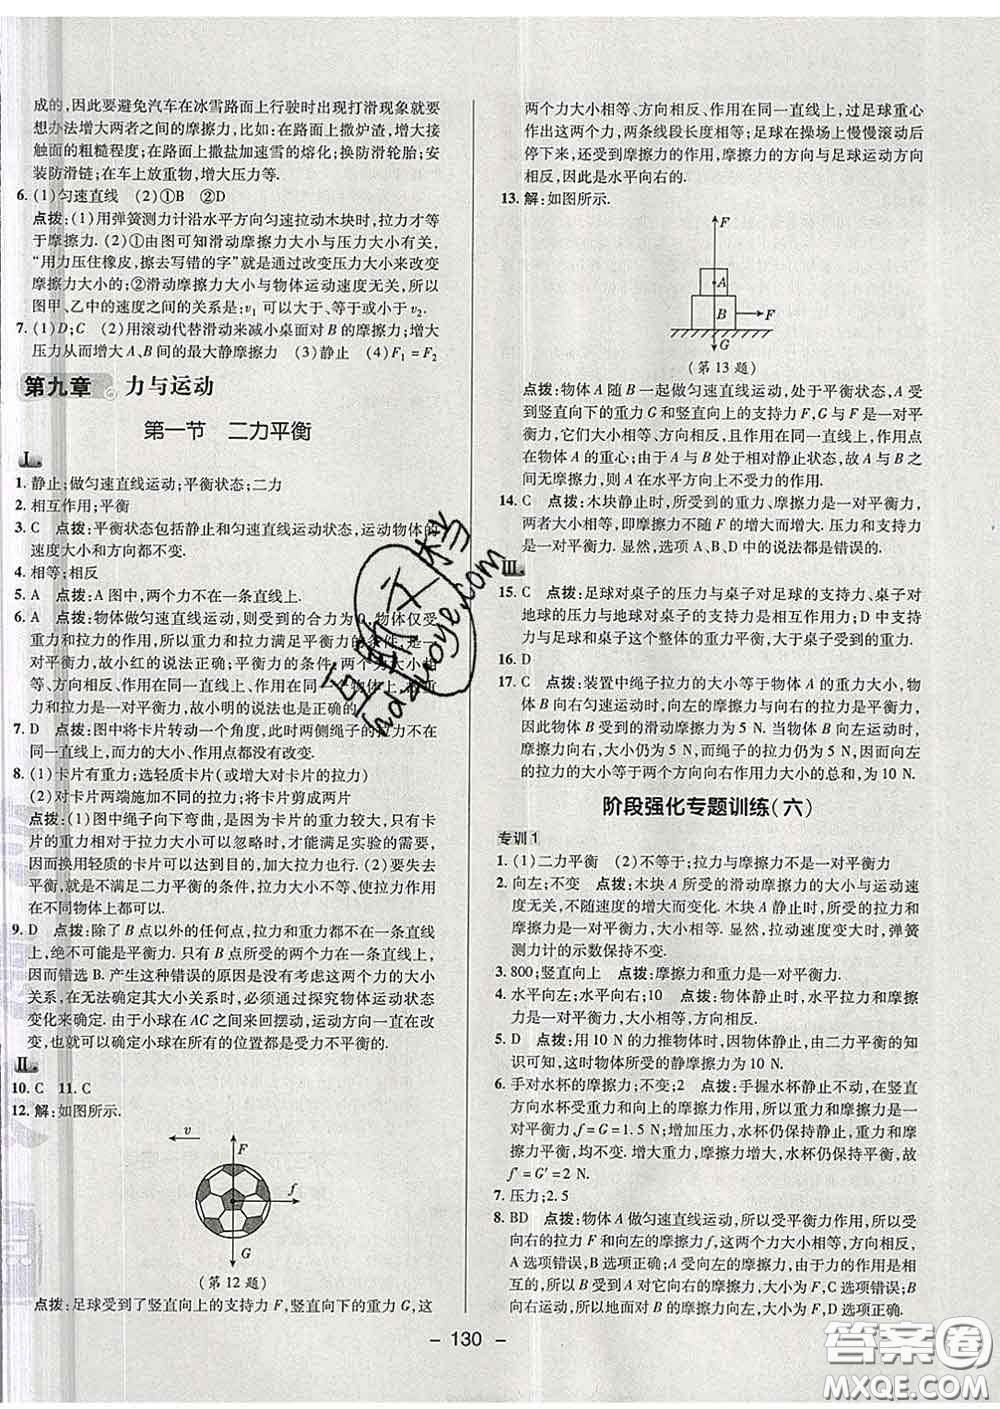 成的,因此要避免汽车在冰雪路面上行驶时出现打滑现象就要
想办法增大两者之间的摩擦力,比如:在路面上撒炉渣,增大接
触面的粗糙程度;在路面上撒盐加速雪的熔化;换防滑轮胎;安
装防滑链;在车上放重物,增大压力等.
6. (1)匀速直线 (2)①B ②D
点拨:(1)用弹簧测力计沿水平方向匀速拉动木块时,拉力才等
于摩擦力. (2)①由图可知滑动摩擦力大小与压力大小有关,
“用力压住橡皮,擦去写错的字”就是通过改变压力大小来改变
摩擦力大小的;②滑动摩擦力大小与物体运动速度无关,所以
图甲、乙中的速度之间的关系是:v₁ 可以大于、等于或小于 v₂.
7. (1)D;C (2)用滚动代替滑动来减小桌面对 B 的摩擦力;增大
压力从而增大 A、B 间的最大静摩擦力 (3)静止 (4)F₁=F₂
第九章 力与运动
第一节 二力平衡
Ⅰ.
1. 静止;做匀速直线运动;平衡状态;二力
2. 相互作用;平衡
3. C 点拨:平衡状态包括静止和匀速直线运动状态,运动物体的
速度大小和方向都不变.
4. 相等;相反
5. A 点拨:A 图中,两个力不在一条直线上.
6. A 点拨:物体做匀速直线运动,则受到的合力为 0,物体仅受
重力和拉力的作用,所以重力和拉力满足平衡力的条件,是一
对平衡力,故小红的说法正确;平衡力的条件:两个力大小相
等、方向相反、作用在同一直线上、作用在同一物体上,故重
力和拉力是一对平衡力,故小明的说法也是正确的.
7. D 点拨:图中将卡片转动一个角度,此时两侧绳子的拉力不在
同一直线上,而力的大小、作用点都没有改变.
8. (1)卡片有重力;选轻质卡片(或增大对卡片的拉力)
(2)对卡片两端施加不同的拉力;将卡片剪成两片
点拨:(1)图中绳子向下弯曲,是因为卡片的重力较大,只有卡
片的重力相对拉力大小可以忽略时,才能满足实验的需要,因
此换用轻质的卡片可以达到目的,加大拉力也行. (2)要失去
平衡,就是不满足二力平衡的条件,拉力大小不等,使拉力作用
在不同物体上都可以.
9. D 点拨:除了 B 点以外的任何点,拉力和重力都不在一条直线
上,绝不可能是平衡力. 只有 B 点所受的两个力在一条直线上,
因而错选 B. 产生这种错误的原因是没有考虑这两个力的大小
关系,在无法确定其大小关系时,必须通过探究物体运动状态
变化来确定. 由于小球在 AC 之间来回摆动,运动方向一直在改
变,也就可以确定小球在所有的位置都是受力不平衡的.
Ⅱ.
10. C 11. C
12. 解:如图所示.
v
F
f
G
(第 12 题)
点拨:足球受到了竖直向上的支持力 F,竖直向下的重力 G,这
两个力大小相等、方向相反、作用在同一直线上,过足球重心
作出这两个力,两条线段长度相等;足球在操场上慢慢滚动后
停下来,还受到摩擦力的作用,摩擦力的方向与足球运动方向
相反,因此是水平向右的.
13. 解:如图所示.
F
A
B
F
G
(第 13 题)
点拨:物体 A 随 B 一起做匀速直线运动,处于平衡状态,A 受
到竖直向下的重力 G 和竖直向上的支持力 F,F 和 G 是一对平
衡力,它们大小相等、方向相反,且作用在同一条直线上,作用
点画在重心;由于 A 与 B 处于相对静止状态,故 A 与 B 之
间无摩擦力,则 A 在水平方向上不受力的作用.
14. C 点拨:木块静止时,所受到的重力、摩擦力是一对平衡力,
两者大小相等,即摩擦力不随 F 的增大而增大. 压力和支持力
是一对平衡力. 显然,选项 A、B、D 中的说法都是错误的.
Ⅲ.
15. C 点拨:足球对桌子的压力与桌子对足球的支持力、桌子对
地球的压力与地球对桌子的支持力是相互作用力;D 中支持
力与足球和桌子这个整体的重力平衡,大于桌子受到的重力.
16. D
17. C 点拨:装置中绳子拉力的大小等于物体 A 的重力大小,物
体 B 向右匀速运动时,向左的摩擦力与向右的拉力是平衡力,
因此物体 B 受到的滑动摩擦力为 5 N. 当物体 B 向左运动时,
摩擦力向右,大小仍为 5 N,而绳子的拉力仍为 5 N,因而向左
的拉力的大小等于两个方向向右作用力大小的总和,为 10 N.
阶段强化专题训练(六)
专训 1
1. (1)二力平衡 (2)不等于;拉力与摩擦力不是一对平衡力
2. 向左;不变 点拨:木块 A 所受的滑动摩擦力的大小与运动速
度无关,不随速度的增大而变化. 木块 A 静止时,所受的拉力和
摩擦力是一对平衡力,大小相等. 显然,拉动速度变大时,弹簧
测力计的示数保持不变.
3. 800;竖直向上 点拨:摩擦力和重力是一对平衡力.
4. 水平向左;水平向右;10 点拨:物体静止时,水平拉力和摩擦
力是一对平衡力,大小相等,方向相反.
5. D 点拨:用 10 N 的力推物体时,物体静止,由二力平衡的知
识可知,这时物体所受的静摩擦力为 10 N.
6. 手对水杯的摩擦力;不变;2 点拨:手握水杯静止不动,在竖直
方向水杯受重力和向上的摩擦力作用,所以重力和摩擦力是一
对平衡力,f=G=1.5 N;增加压力,水杯仍保持静止,重力和摩
擦力平衡,均不变;向杯中加水,重力增大,水杯仍静止,故
f′=G′=2 N.
7. 压力;2.5
8. BD 点拨:物体 A 做匀速直线运动,所以受平衡力作用,所以受
向右的拉力 F 和向左的摩擦力 f,两个力大小相等、方向相反,
A 选项错误,B 选项正确;A 受向左的摩擦力,由于力的作用是相
互的,所以 B 受到 A 对它向右的摩擦力,大小为 F,C 选项错误;B
向右运动,所以地面对 B 的摩擦力向左,大小为F,D 选项正确.
- 130 -
互助文档
hdzuoye.com
答案圈
MXQE.COM